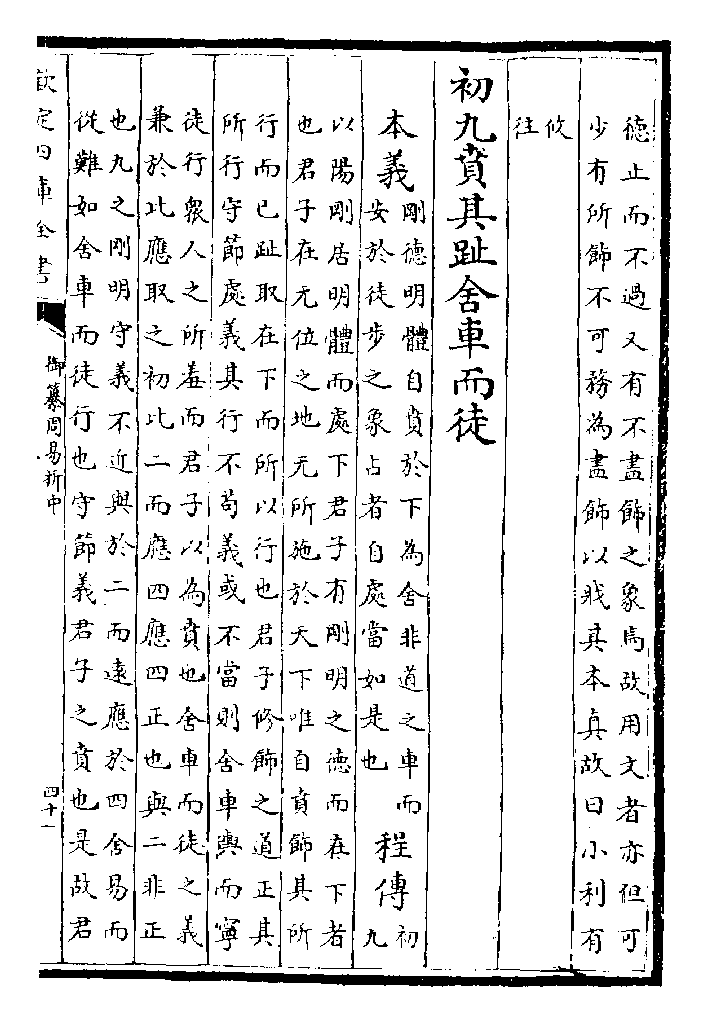 德止而不過又有不盡飾之象焉故用文者亦但可
少有所飾不可務為盡飾以戕其本真故曰小利有
攸
往
初九賁其趾舍車而徒
本義
剛德明體自賁於下為舍非道之車而
安於徒步之象占者自處當如是也
程傳
初
九
以陽剛居明體而處下君子有剛明之德而在下者
也君子在无位之地无所施於天下唯自賁飾其所
行而已趾取在下而所以行也君子修飾之道正其
所行守節處義其行不苟義或不當則舍車輿而寧
徒行衆人之所羞而君子以為賁也舍車而徒之義
兼於比應取之初比二而應四應四正也與二非正
也九之剛明守義不近與於二而遠應於四舍易而
從難如舍車而徒行也守節義君子之賁也是故君
欽定四庫全書
御纂周易折中
四十一